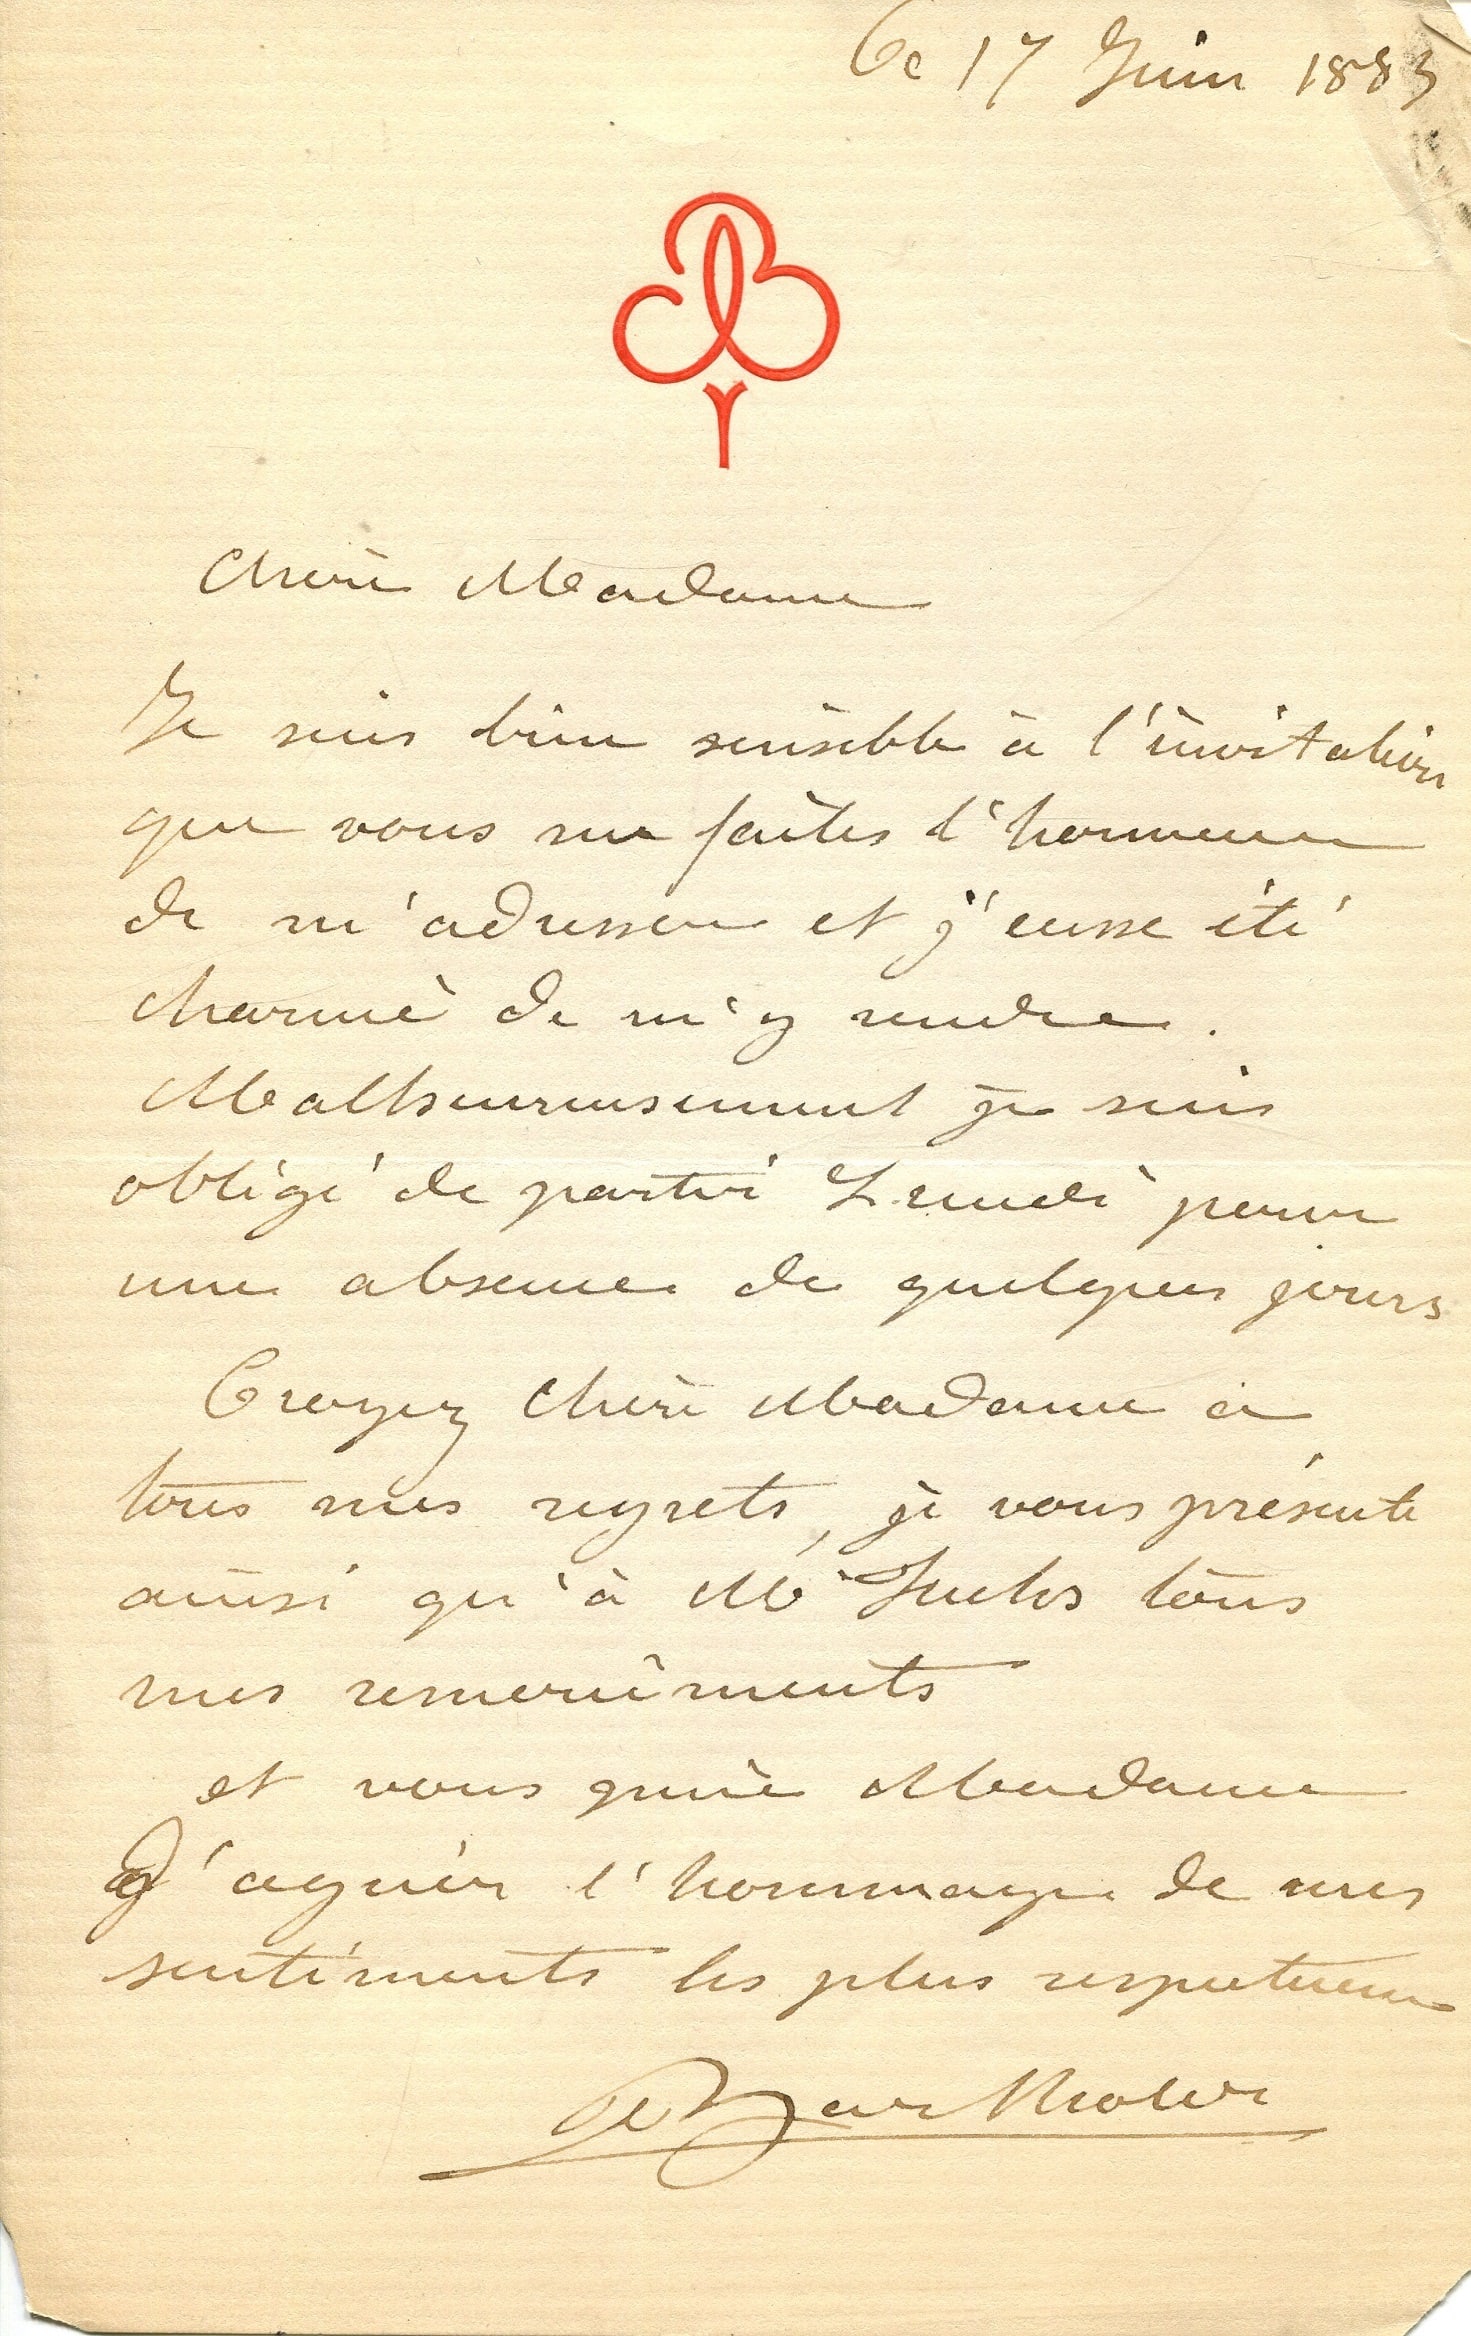 Ce 17 Juin 1883
Chère Madame
Je suis bien sensible à l'invitation
que vous me faites l'honneur
de m'adresser et j'eusse été
charmé de m'y rendre.
Malheureusement je suis
obligé de partir Lundi pour
une absence de quelques jours
Croyez chère Madame à
tous mes regrets, je vous présente
ainsi qu'à Mr tous
mes remerciments
et vous prie Madame
d'agréer l'hommage de mes
sentiments les plus respectueux
Bartholdi